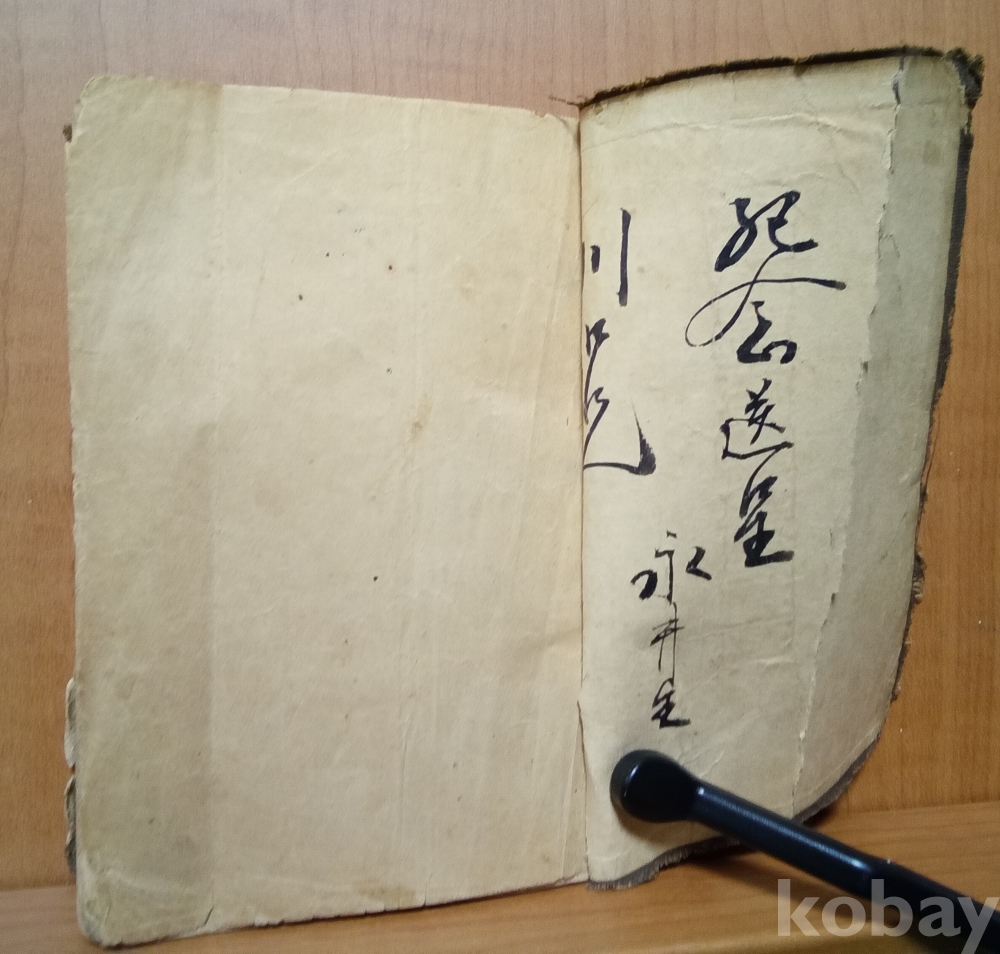 紀念送呈
永井生
川口兄
kobay